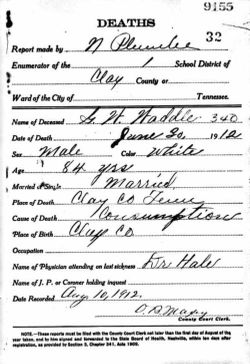 9155
DEATHS
32
Report made by N Plumlee
Enumerator of the 1 School District of
Clay County or
Ward of the City of Tennessee.
Name of Deceased G. W. Waddle 340
Date of Death June 30, 1912
Sex Male Color White
Age 84 yrs
Married or Single Married
Place of Death Clay Co Tenn
Cause of Death Consumption
Place of Birth Clay Co
Occupation
Name of Physician attending on last sickness Dr Hale
Name of J. P. or Coroner holding inquest
Date Recorded Aug 10, 1912.
O. B. Maxey
County Court Clerk.
NOTE.—These reports must be filed with the County Court Clerk not later than the first day of August of the
year taken, and by him signed and forwarded to the State Board of Health, Nashville, within ten days after
registration, as provided by Section 5, Chapter 341, Acts 1909.